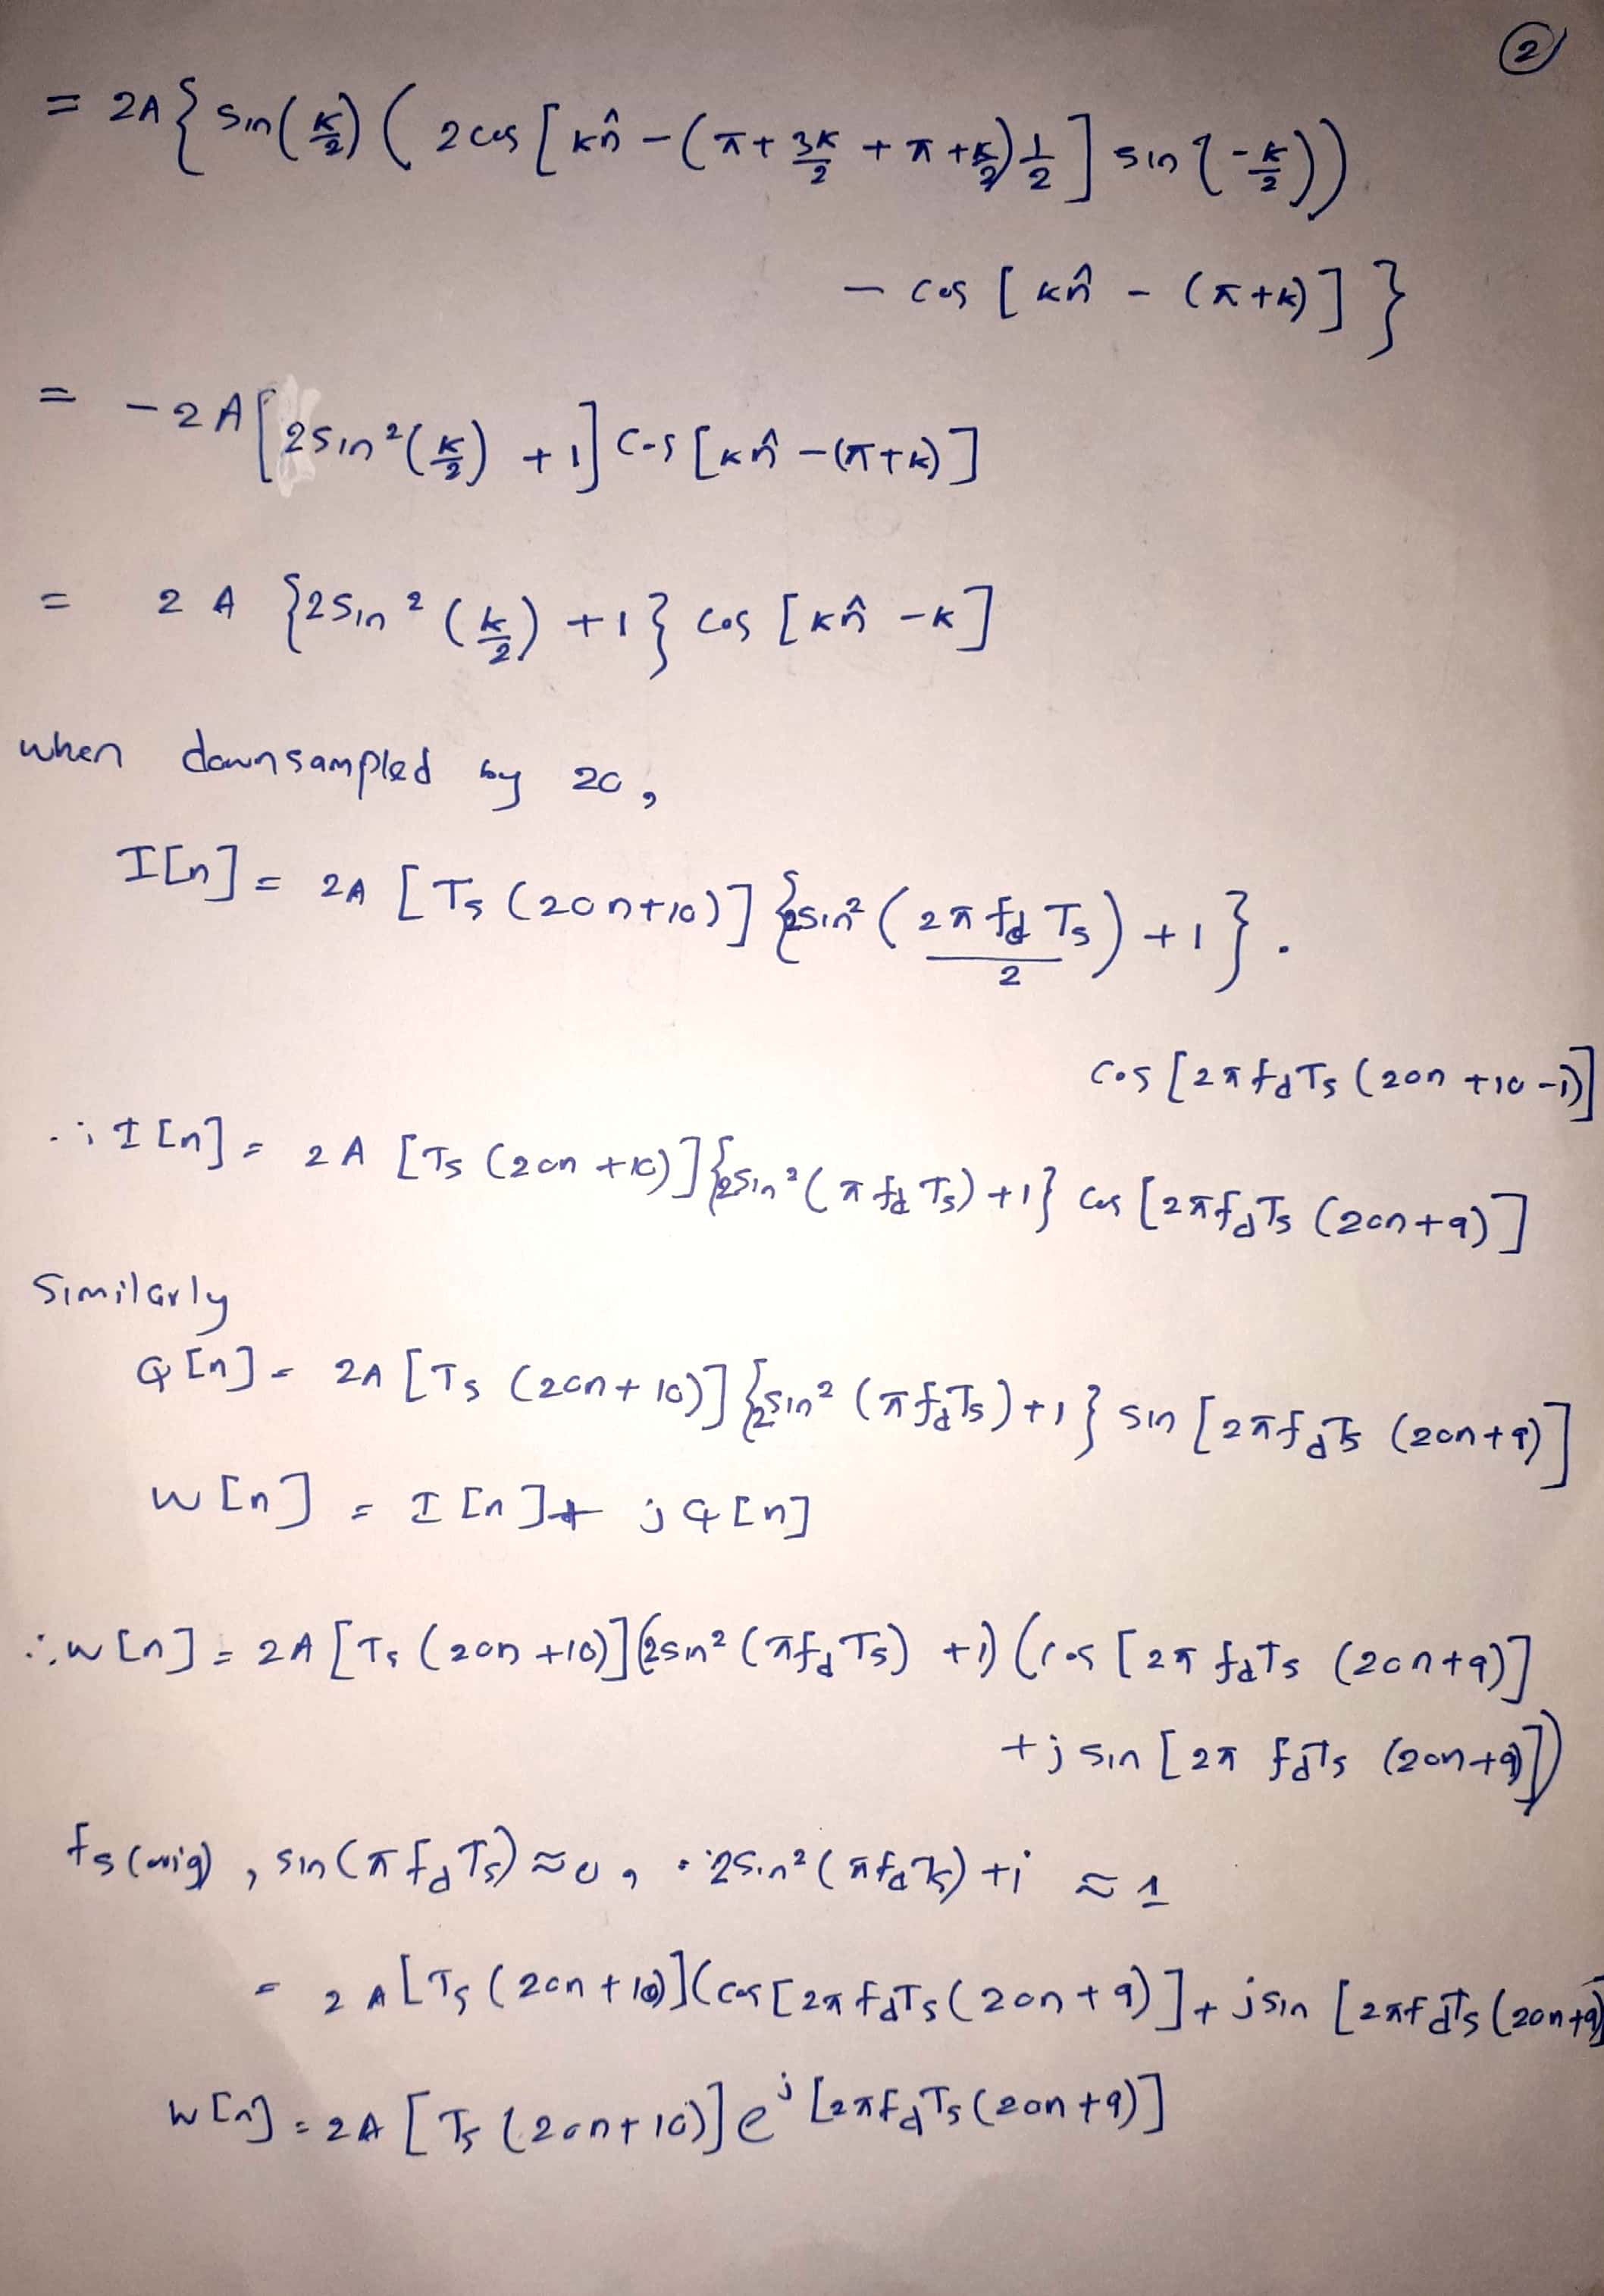 ②
= 2A { sin(K/2) ( 2cos [ Kn̂ - (π + 3K/2 + π + K/2) 1/2 ] sin (-K/2) )
- cos [ Kn̂ - (π+K) ] }
= -2A [ 2sin²(K/2) + 1 ] cos [ Kn̂ - (π+K) ]
= 2A { 2sin²(K/2) + 1 } cos [ Kn̂ - K ]
when downsampled by 20,
I[n] = 2A [ Ts (20n+10) ] { 2sin² ( 2πfd Ts / 2 ) + 1 } .
cos [ 2πfdTs (20n +10 -1) ]
∴ I[n] = 2A [ Ts (20n +10) ] { 2sin² (πfd Ts) + 1 } cos [ 2πfdTs (20n+9) ]
Similarly
Q[n] = 2A [ Ts (20n+10) ] { 2sin² (πfdTs) + 1 } sin [ 2πfdTs (20n+9) ]
W[n] = I[n] + jQ[n]
∴ W[n] = 2A [ Ts (20n +10) ] (2sin² (πfdTs) + 1) ( cos [ 2πfdTs (20n+9) ]
+ j sin [ 2π fdTs (20n+9) ] )
fs(orig) , sin(πfdTs) ≈ 0 , ∴ 2sin² (πfdTs) + 1 ≈ 1
= 2A [ Ts (20n + 10) ] ( cos [ 2πfdTs (20n+9) ] + jsin [ 2πfdTs (20n+9)
W[n] = 2A [ Ts (20n+10) ] e^j [ 2πfdTs (20n+9) ]